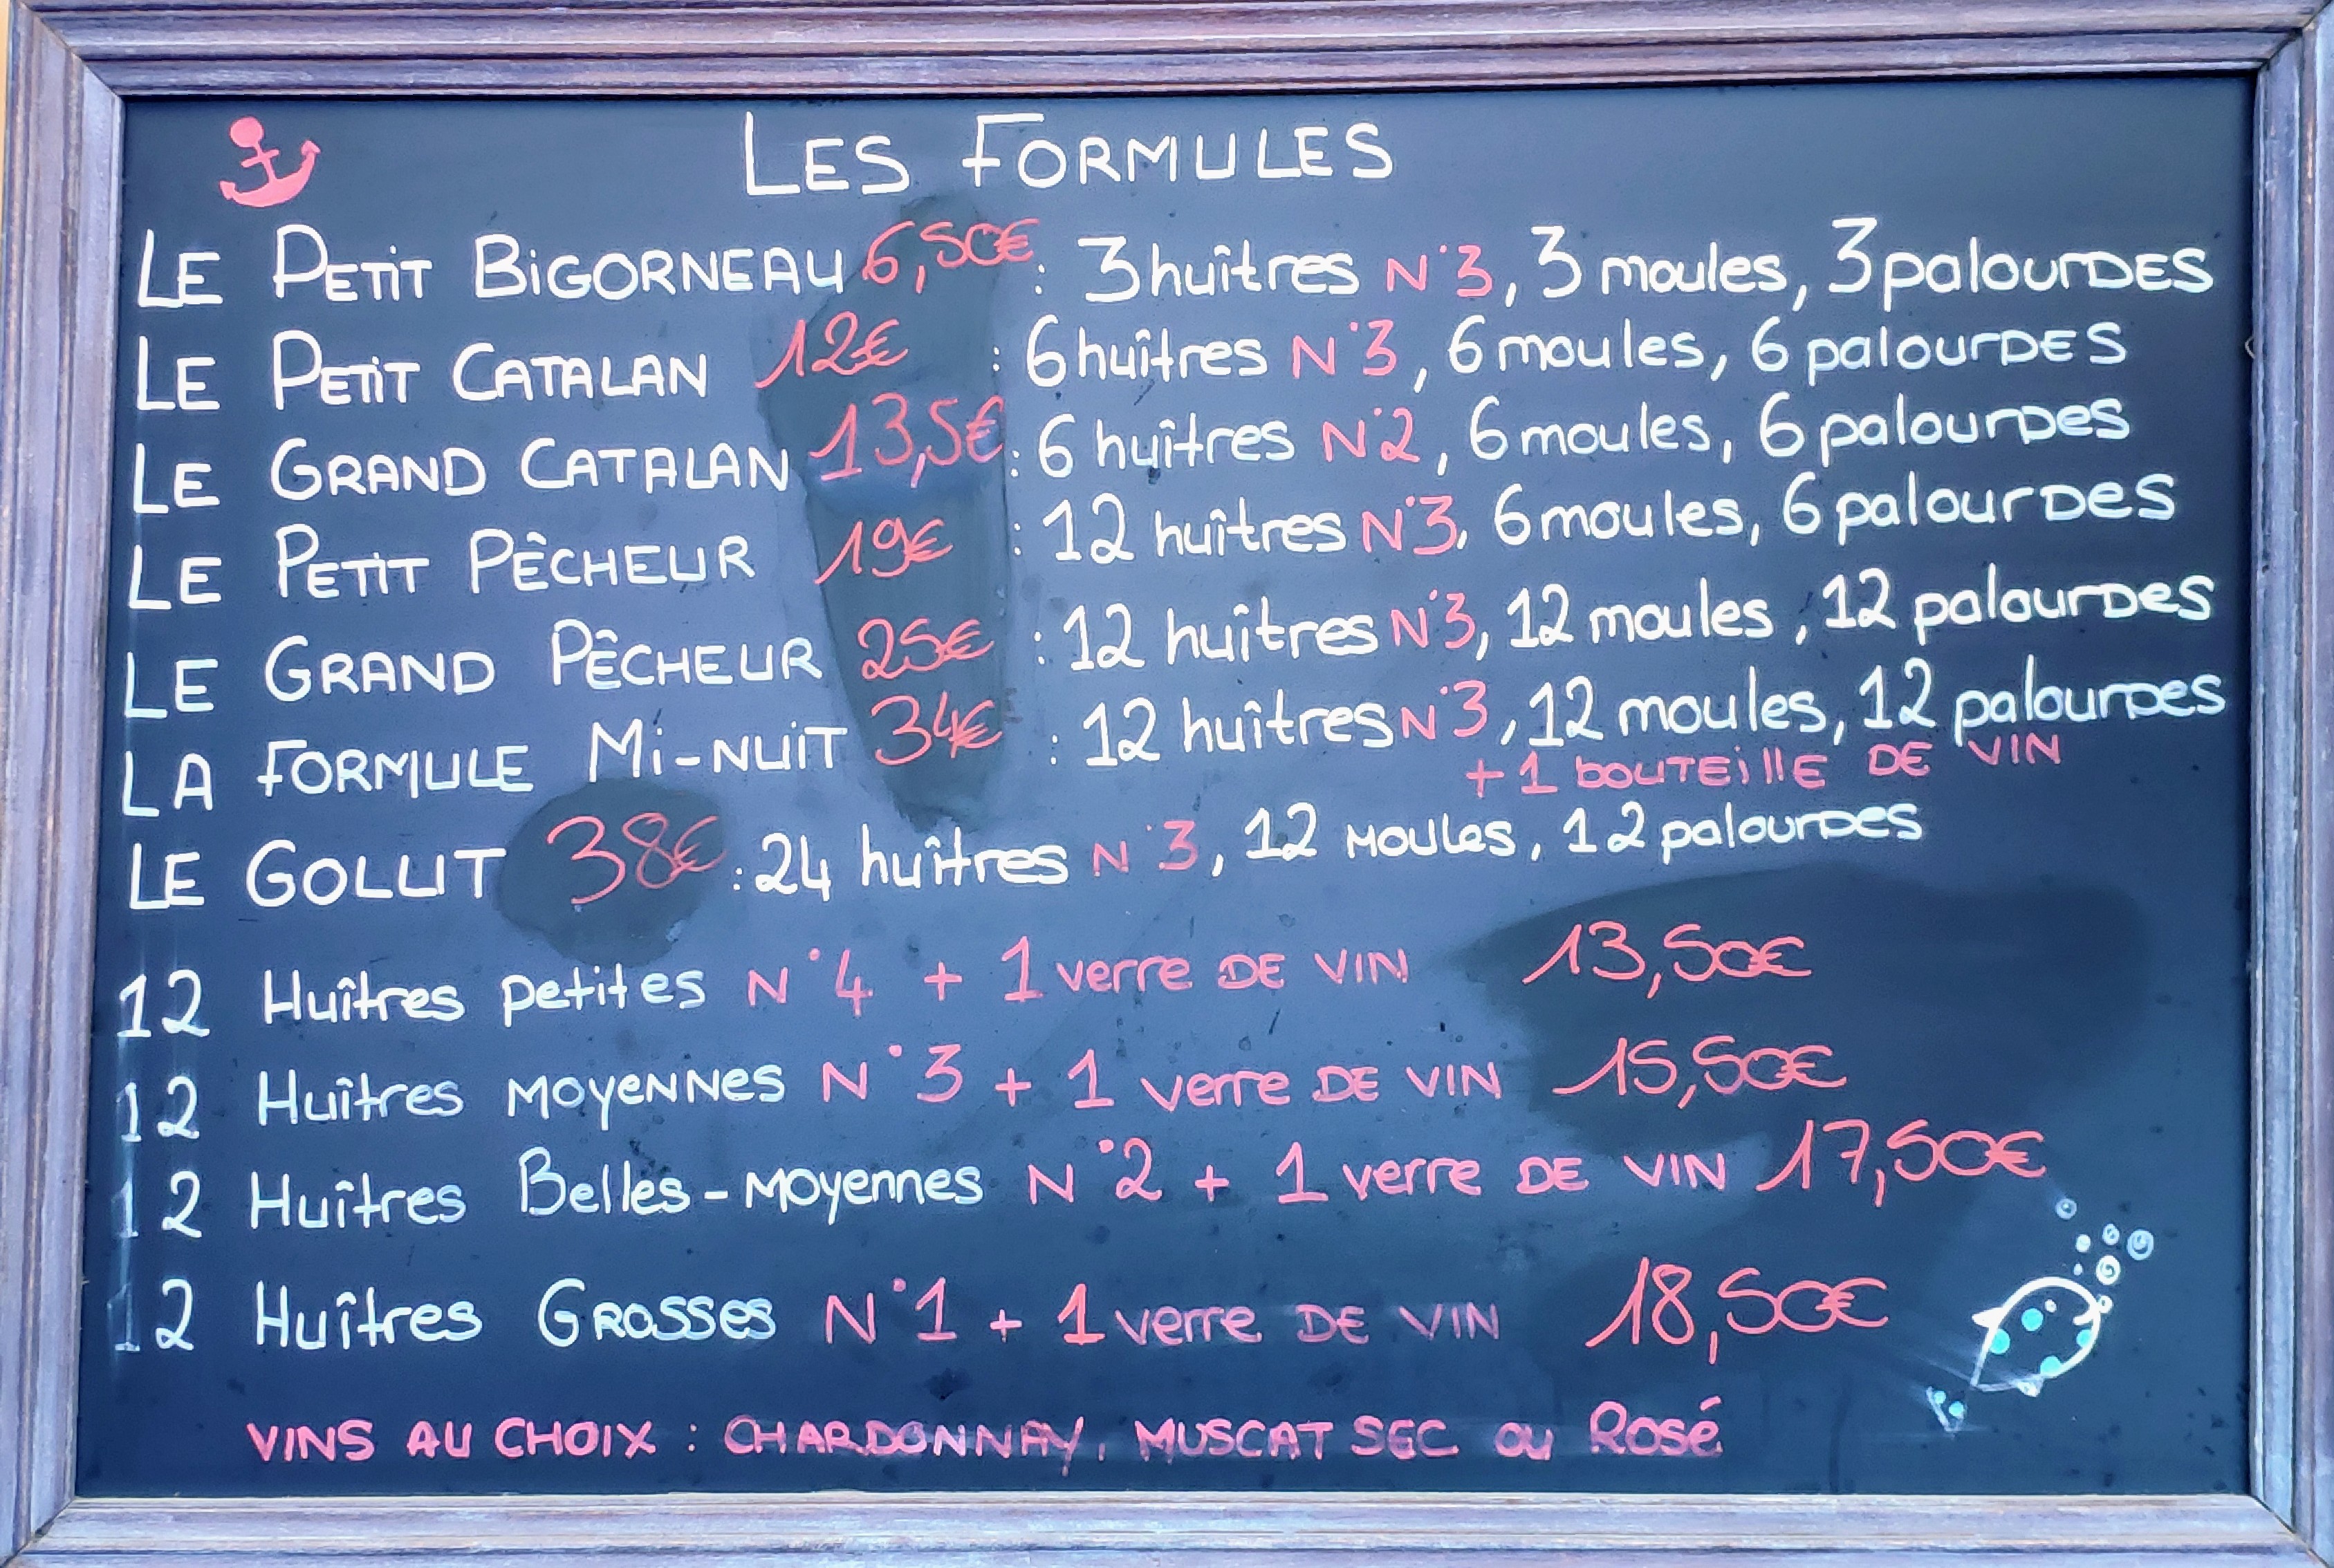 LES FORMULES
LE PETIT BIGORNEAU 6,50€ : 3 huîtres N°3, 3 moules, 3 palourdes
LE PETIT CATALAN 12€ : 6 huîtres N°3, 6 moules, 6 palourdes
LE GRAND CATALAN 13,5€ : 6 huîtres N°2, 6 moules, 6 palourdes
LE PETIT PÊCHEUR 19€ : 12 huîtres N°3, 6 moules, 6 palourdes
LE GRAND PÊCHEUR 25€ : 12 huîtres N°3, 12 moules, 12 palourdes
LA FORMULE MI-NUIT 34€ : 12 huîtres N°3, 12 moules, 12 palourdes
+ 1 bouteille DE VIN
LE GOLLUT 38€ : 24 huîtres N°3, 12 moules, 12 palourdes
12 Huîtres petites N°4 + 1 verre DE VIN 13,50€
12 Huîtres moyennes N°3 + 1 verre DE VIN 15,50€
12 Huîtres Belles-moyennes N°2 + 1 verre DE VIN 17,50€
12 Huîtres Grosses N°1 + 1 verre DE VIN 18,50€
VINS AU CHOIX : CHARDONNAY, MUSCAT SEC ou Rosé